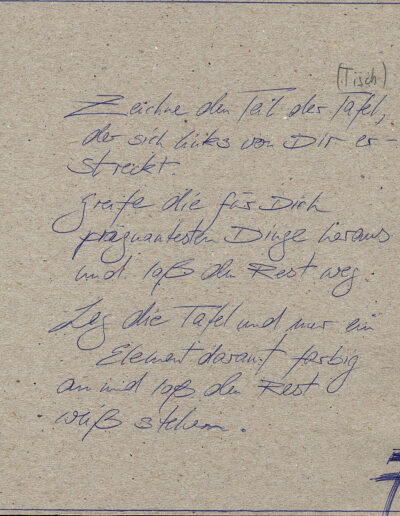 (Tisch)
Zeichne den Teil der Tafel,
der sich links von Dir er-
streckt.
Greife die für Dich
prägnantesten Dinge heraus
und laß den Rest weg.
Leg die Tafel und nur ein
Element darauf farbig
an und laß den Rest
weiß stehen.